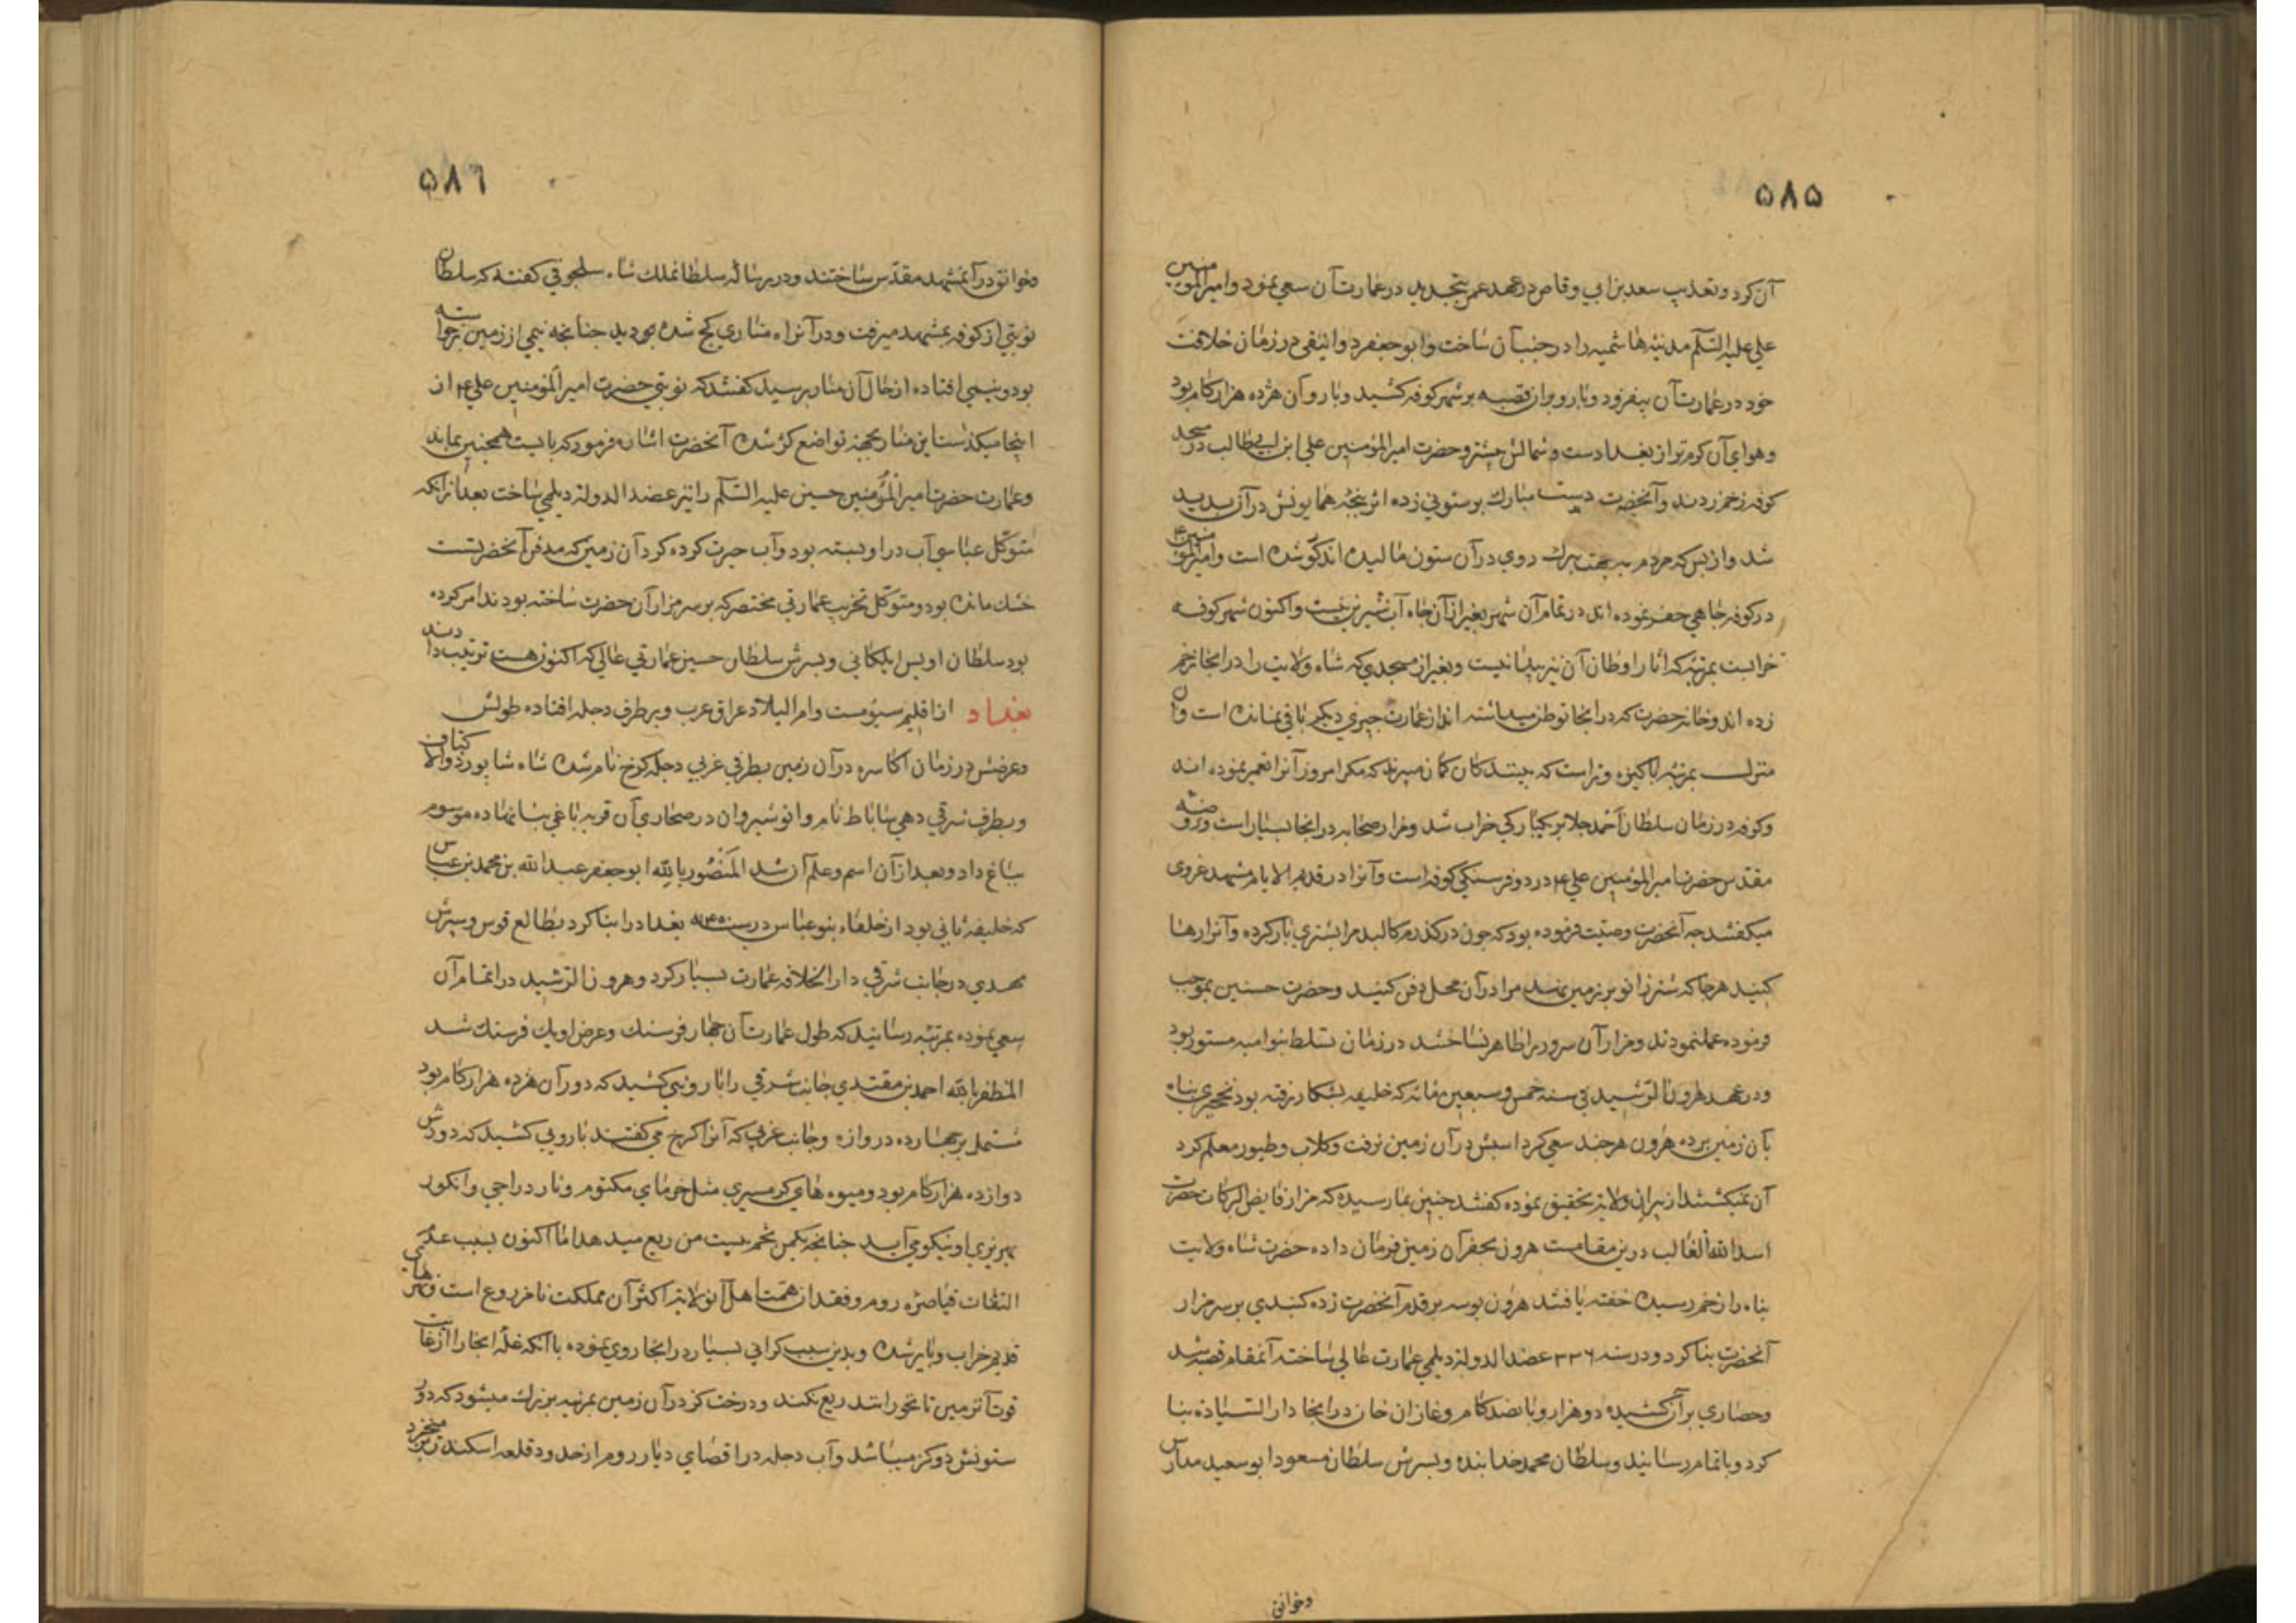 ۵۸۵
آن کرد و تعذیب سعد بن ابی وقاص در عهد عمر بتجدید در عمارت آن سعی نمود و امیر المومنین
علی علیه السّلم مدینه هاشمیه را در جنب آن ساخت و ابو جعفر دوانیقی در زمان خلافت
خود در عمارت آن بیفزود و بارو بران قصبه بر شهر کوفه کشید و باروآن هژده هزار کام بود
و هوای آن کرم تر از بغدادست و شمالش بیشتر و حضرت امیر المؤمنین علی ابن ابی طالب در مسجد
کوفه زخم زدند و آنحضرت دست مبارک بر ستونی زده اثر پنجه همایونش در آن پدید
شد و از بس که مردم به جهت تبرک روی در آن ستون مالیده اند کو شده است و امیر المومنین ع
در کوفه چاهی حفر نموده اند در تمام آن شهر بغیر از آن چاه آب شیرین نیست و اکنون شهر کوفه
خرابست بمرتبه که آثار اوطان آن نیز پیدا نیست و بغیر از مسجدی که شاه ولایت را در انجا زخم
زده اند و خانه حضرت که در انجا توطن میداشته اند از عمارت چیزی دیکر باقی نمانده است و آن
منزل بمرتبه پاکیزه و تر است که بینندکان کمان میبرند که مکر امروز آنرا تعمیر نموده اند
و کوفه در زمان سلطان احمد جلایر یکبارکی خراب شد و مزار صحابه در انجا بسیار است و روضه
مقدس حضرت امیر المؤمنین علی ع در دو فرسنکی کوفه است و آنرا در قدیم الایام مشهد غروی
میکفتند چه آنحضرت وصیّت فرموده بود که چون درکذرم کالبد مرا بشتری بار کرده و آنرا رها
کنید هر جا که شتر زانو بر زمین نهد مرا در آن محل دفن کنید و حضرت حسنین بموجب
فرموده عمل نمودند و مزار آن سرور را ظاهر نساختند در زمان تسلط بنو امیه مستور بود
و در عهد هرون الرّشید فی سنه خمس و سبعین و مائه که خلیفه بشکار رفته بود نخچیری پناه
بآن زمین برده هرون هر چند سعی کرد اسبش در آن زمین نرفت و کلاب و طیور معلم کرد
آن نمیکشتند از پیران ولایت تحقیق نموده کفتند چنین بما رسیده که مزار فایض البرکات حضرت
اسد الله الغالب درین مقامست هرون بحفر آن زمین فرمان داده حضرت شاه ولایت
پناه را زخم رسیده خفته یافتند هرون بوسه بر قدم آنحضرت زده کنبدی بر سر مزار
آنحضرت بنا کرد و در سنه ۳۳۶ عضد الدوله دیلمی عمارت عالی ساخته آنمقام قصبه شد
و حصاری بر آن کشیده دو هزار و پانصد کام و غازان خان در انجا دار السّیاده بنا
کرد و باتمام رسانید و سلطان محمد خدا بنده و پسرش سلطان مسعود ابو سعید مدارس
وخوانق
۵۸۶
وخوانق در آنمشهد مقدّس ساختند و در رساله سلطان ملک شاه سلجوقی کفته که سلطان
نوبتی از کوفه بمشهد میرفت و در آنراه مناری کج شده بود بدید چنانچه نیمی از زمین برخواسته
بود و نیمی افتاده از حال آن منار پرسید کفتند که نوبتی حضرت امیر المؤمنین علی ع از
اینجا میکذشت این منار بجهت تواضع کژ شده آنحضرت اشاره فرمود که بایست همچنین بماند
و عمارت حضرت امیر المؤمنین حسین علیه السّلم را نیز عضد الدوله دیلمی ساخت بعد از آنکه
متوکّل عباسی آب در او بسته بود و آب حیرت کرده کرد آن زمین که مدفن آنحضرتست
خشک مانده بود و متوکّل تخریب عمارتی مختصر که بر سر مزار آن حضرت ساخته بودند امر کرده
بود سلطان اویس ایلکانی و پسرش سلطان حسین عمارتی عالی که اکنون هست ترتیب دادند
بغداد از اقلیم سیومست و ام البلاد عراق عرب و بر طرف دجله افتاده طولش
و عرضش در زمان اکاسره در آن زمین بطرف غربی دجله کرخ نام شده شاه شاپور ذو الاکتاف
و بطرف شرقی دهی ساباط نام و انوشیروان در صحاری آن قریه باغی بنا نهاده موسوم
بباغ داد و بعد از آن اسم و علم آن شد المَنْصُور بالله ابو جعفر عبد الله بن محمد بن عباس
که خلیفه ثانی بود از خلفاء بنو عباس در سنه ۱۴۵ بغداد را بنا کرد بطالع قوس و پسرش
مهدی در جانب شرقی دار الخلافه عمارت بسیار کرد و هرون الرّشید در اتمام آن
سعی نموده بمرتبه رسانید که طول عمارت آن چهار فرسنک و عرض او یک فرسنک شد
المظفر بالله احمد بن مقتدی جانب شرقی را باروئی کشید که دور آن هژده هزار کام بود
مشتمل بر چهارده دروازه و جانب غربی که آنرا کرخ می کفتند باروئی کشید که دورش
دوازده هزار کام بود و میوه های کرمسیری مثل خرمای مکتوم و نار دراجی و انکور
بهریزی او نیکو می آید چنانچه یکمن تخم بیست من ریع میدهد اما اکنون بسبب عدم
التفات قیاصره روم و فقدان همّت اهل آن ولایت اکثر آن مملکت نامزروع است و نهرهای
قدیم خراب و بایر شده و بدین سبب کرانی بسیار در انجا روی نموده با آنکه غلّه انجا را از غایت
قوت آن زمین تا نخورانند ریع نکند و درخت کز در آن زمین بمرتبه بزرک میشود که دور
ستونش دو کز میباشد و آب دجله در اقصای دیار روم از حدود قلعه اسکندر